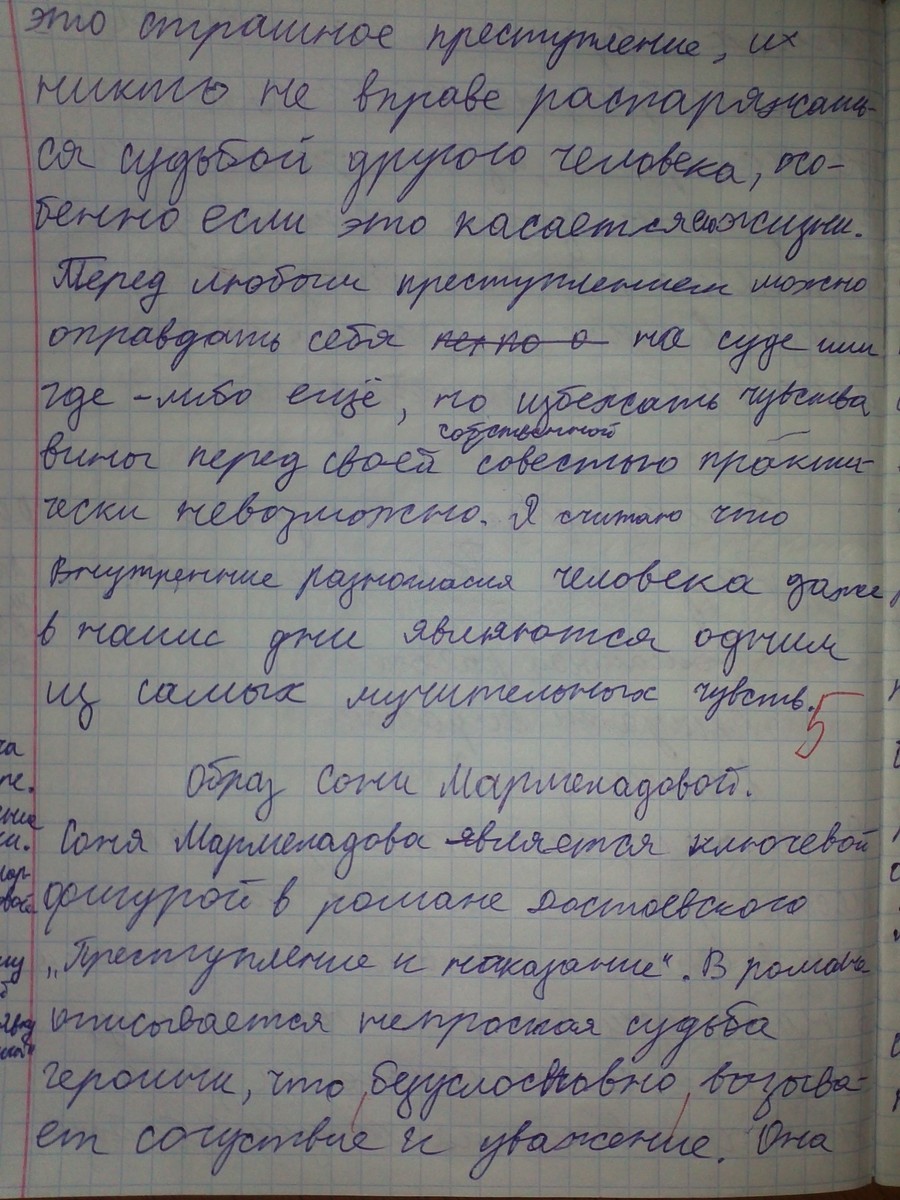 это страшное преступление, их
никто не вправе распаряжать-
ся судьбой другого человека, осо-
бенно если это касается его жизни.
Перед любым преступлением можно
оправдать себя на суде или
где-либо ещё, но избежать чувства
собственной
вины перед своей совестью практи-
чески невозможно. Я считаю что
внутренние разногласия человека даже
в наши дни являются одним
из самых мучительных чувств.
5
Образ Сони Мармеладовой.
Соня Мармеладова является ключевой
фигурой в романе Достоевского
„Преступление и наказание“. В романе
описывается непростая судьба
героини, что, безусловно, вызыва-
ет сочуствие и уважение. Она